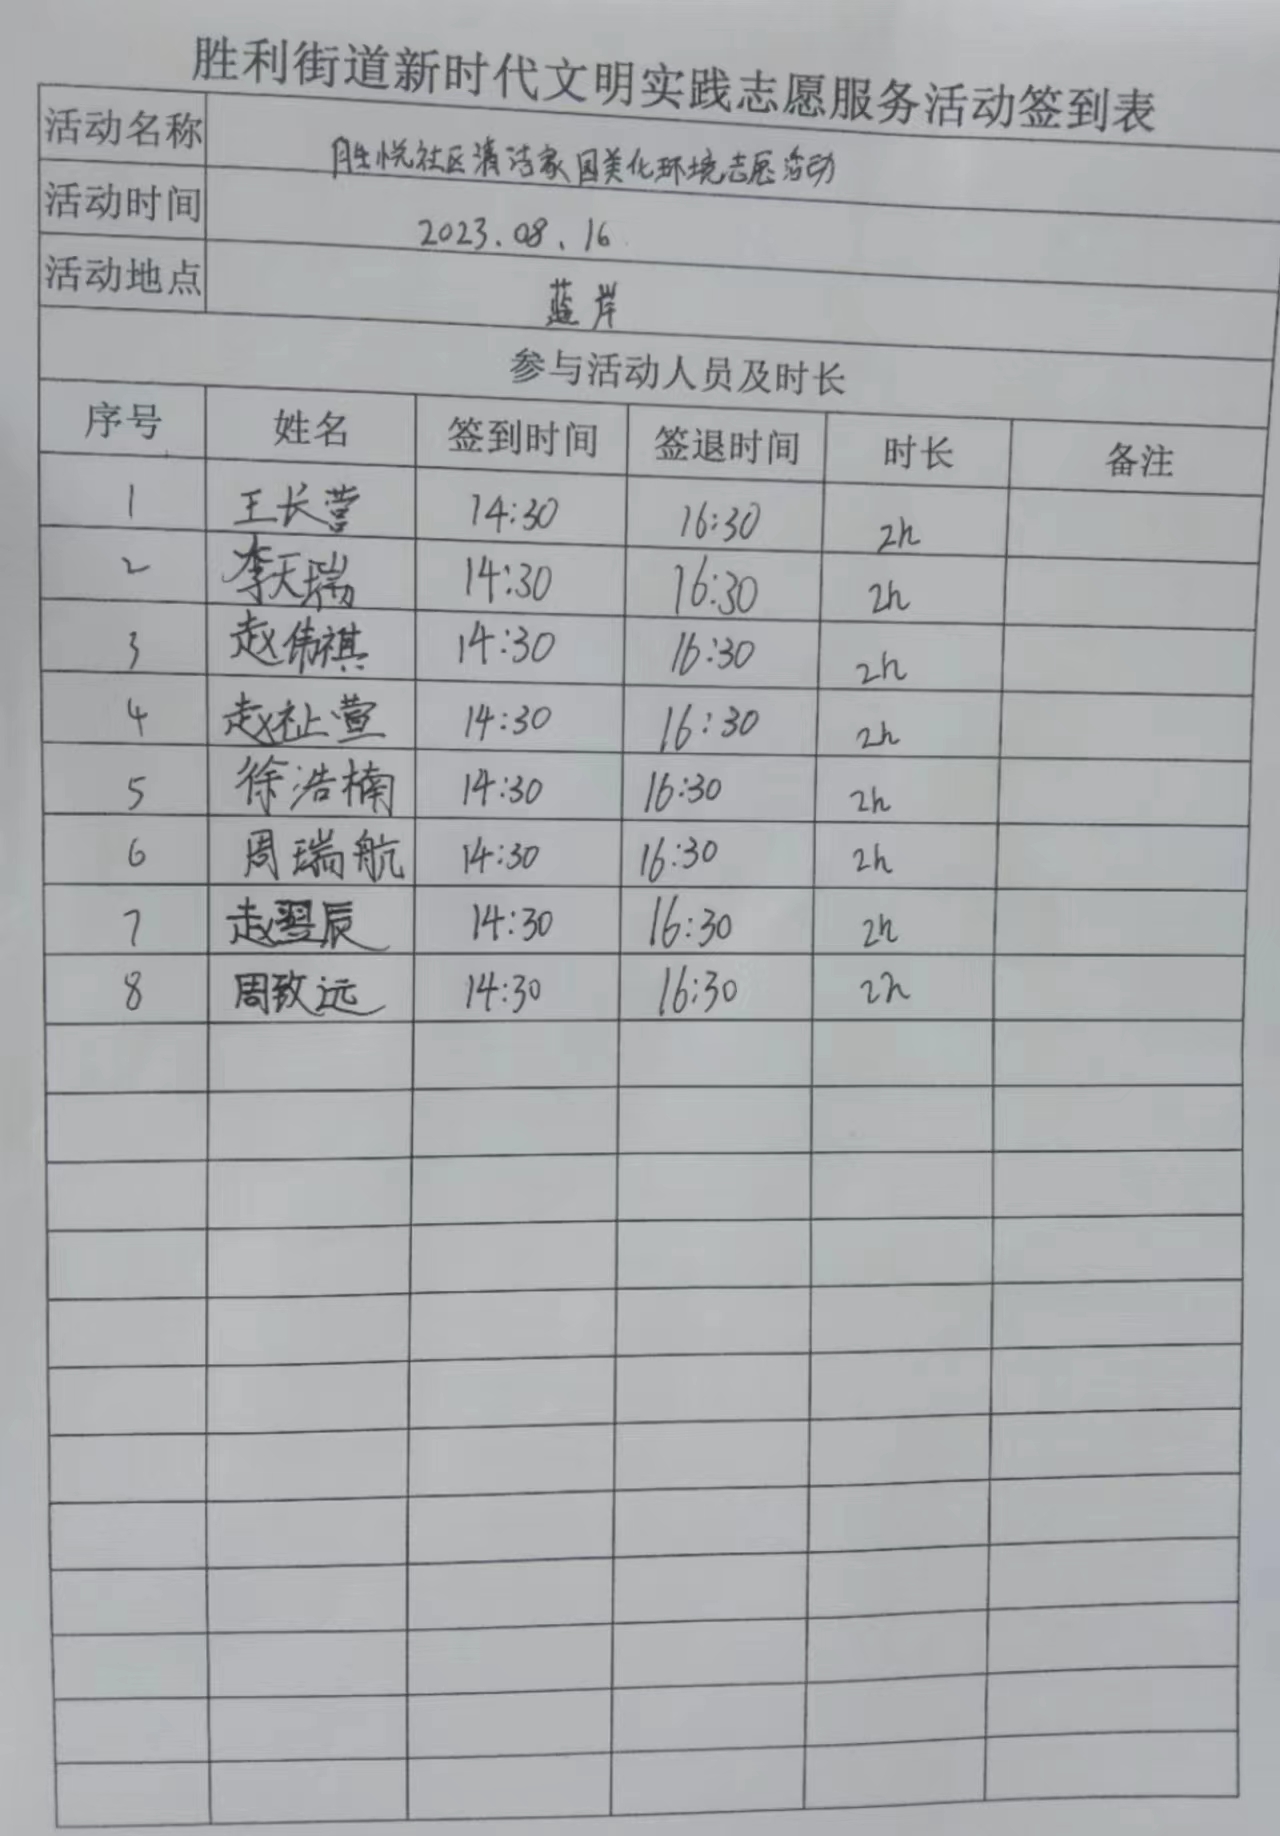 胜利街道新时代文明实践志愿服务活动签到表
活动名称 胜悦社区清洁家园美化环境志愿活动
活动时间 2023.08.16
活动地点 蓝岸
参与活动人员及时长
序号 姓名 签到时间 签退时间 时长 备注
1 王长营 14:30 16:30 2h
2 李天瑞 14:30 16:30 2h
3 赵伟祺 14:30 16:30 2h
4 赵祉萱 14:30 16:30 2h
5 徐浩楠 14:30 16:30 2h
6 周瑞航 14:30 16:30 2h
7 赵翌辰 14:30 16:30 2h
8 周致远 14:30 16:30 2h